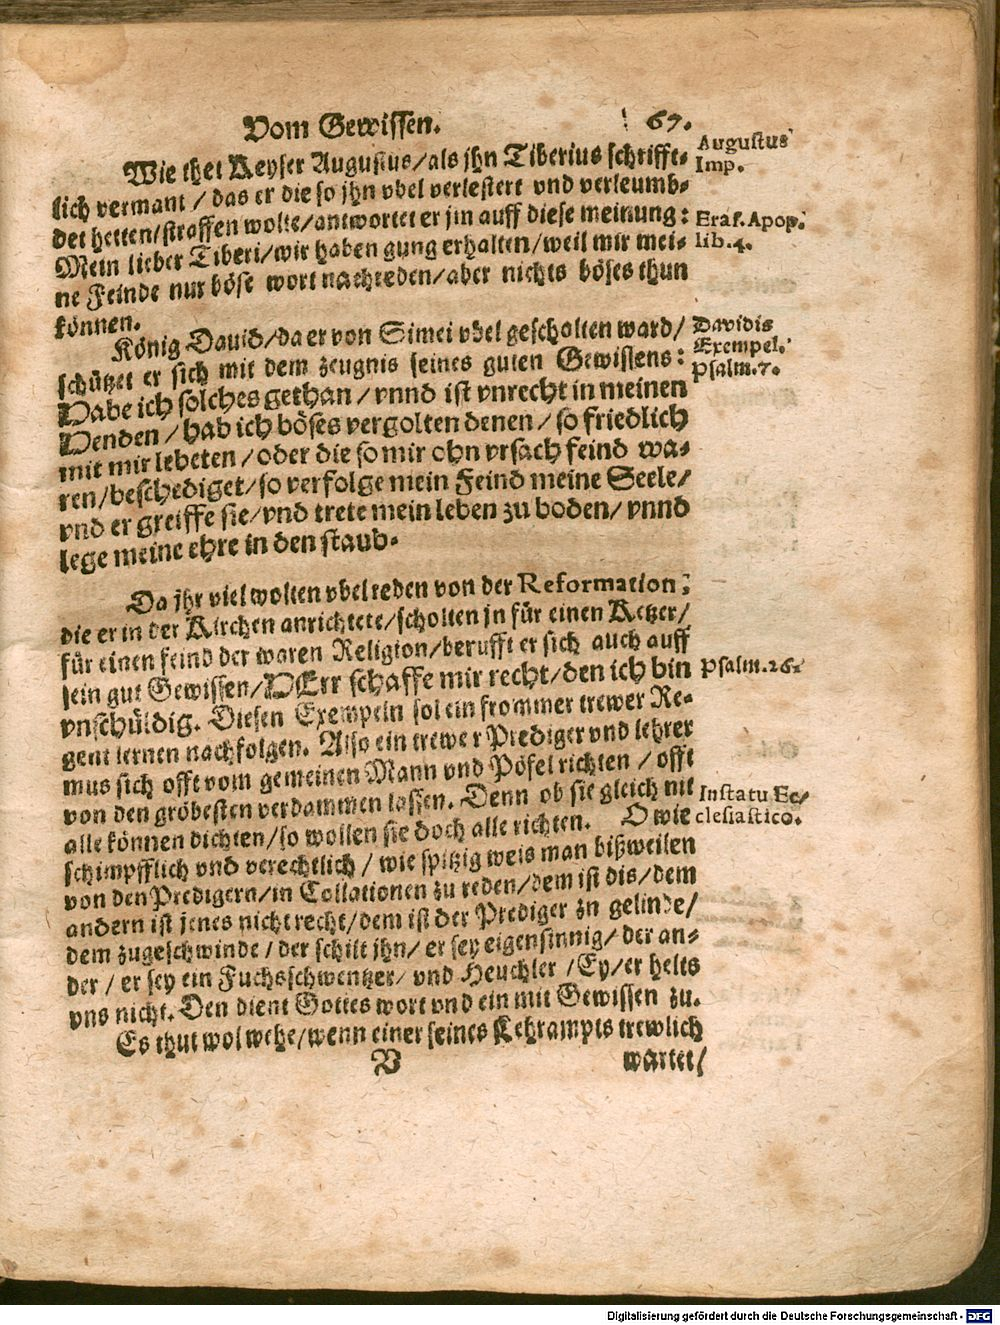 Vom Gewissen. 67.
Wie thet Keyser Augustus/als jhn Tiberius schrifft-
lich vermant / das er die so jhn vbel verlestert vnd verleumb-
det hetten/straffen wolte/antwortet er jm auff diese meinung:
Mein lieber Tiberi/wir haben gung erhalten/weil mir mei-
ne Feinde nur böse wort nachreden/aber nichts böses thun
können.
Augustus
Imp.
Eras. Apop.
lib. 4.
König Dauid/da er von Simei vbel gescholten ward/
schützet er sich mit dem zeugnis seines guten Gewissens:
Habe ich solches gethan / vnnd ist vnrecht in meinen
Henden / hab ich böses vergolten denen / so friedlich
mit mir lebeten / oder die so mir ohn vrsach feind wa-
ren/beschediget/so verfolge mein Feind meine Seele/
vnd er greiffe sie/vnd trete mein leben zu boden/ vnnd
lege meine ehre in den staub.
Davidis
Exempel.
Psalm. 7.
Da jhr viel wolten vbel reden von der Reformation;
die er in der Kirchen anrichtete/scholten jn für einen Ketzer/
für einen feind der waren Religion/berufft er sich auch auff
sein gut Gewissen/HErr schaffe mir recht/den ich bin
vnschüldig. Diesen Exempeln sol ein frommer trewer Re-
gent lernen nachfolgen. Also ein trewer Prediger vnd lehrer
mus sich offt vom gemeinen Mann vnd Pöfel richten / offt
von den gröbesten verdammen lassen. Denn ob sie gleich nit
alle können dichten/so wollen sie doch alle richten. O wie
schimpfflich vnd verechtlich / wie spitzig weis man bißweilen
von den Predigern/in Collationen zu reden/dem ist dis/dem
andern ist jenes nicht recht/dem ist der Prediger zn gelinde/
dem zugeschwinde / der schilt jhn/ er sey eigensinnig/ der an-
der / er sey ein Fuchsschwentzer/ vnd Heuchler / Ey/er helts
vns nicht. Den dient Gottes wort vnd ein mit Gewissen zu.
Es thut wol wehe/wenn einer seines Lehrampts trewlich
Psalm. 26.
In statu Ec-
clesiastico.
V wartet/
Digitalisierung gefördert durch die Deutsche Forschungsgemeinschaft - DFG